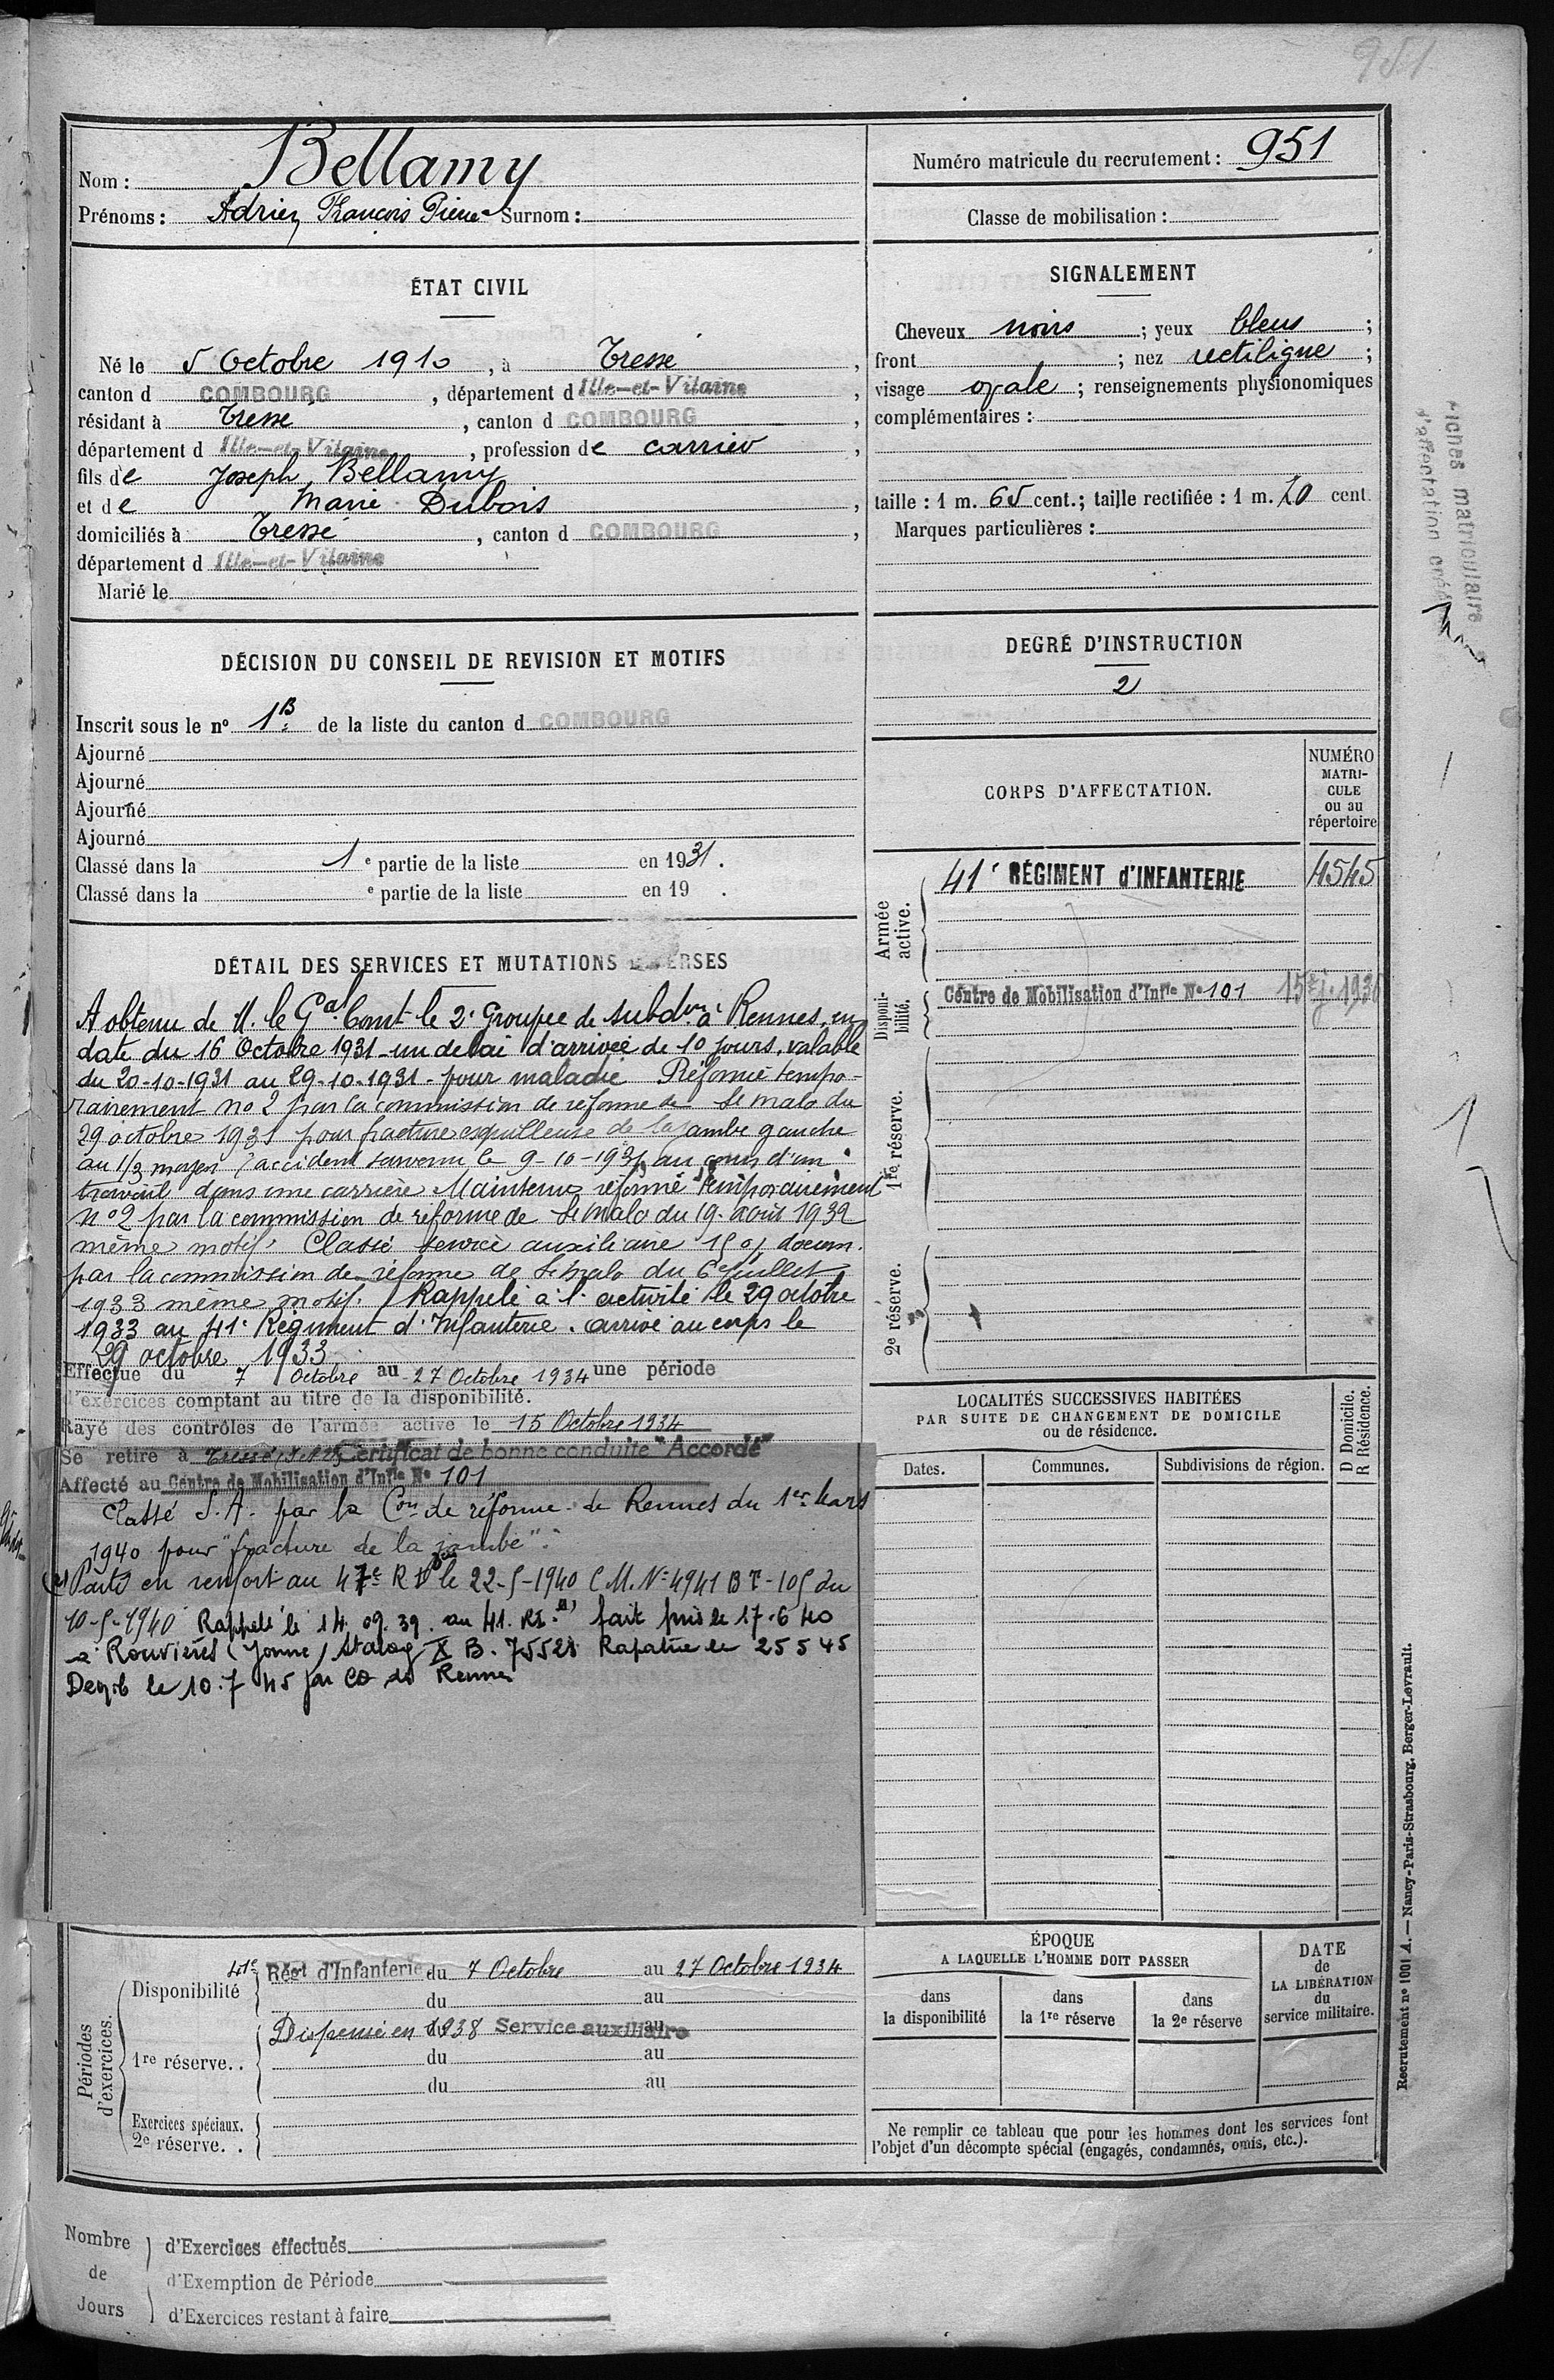 951
Nom : Bellamy
Prénoms : Adrien François Pierre Surnom :
Numéro matricule du recrutement : 951
Classe de mobilisation :
ÉTAT CIVIL
Né le 5 Octobre 1910, à Tressé,
canton d COMBOURG, département d Ille-et-Vilaine,
résidant à Tressé, canton d COMBOURG,
département d Ille-et-Vilaine, profession de carrier,
fils de Joseph Bellamy
et de Marie Dubois,
domiciliés à Tressé, canton d COMBOURG,
département d Ille-et-Vilaine
Marié le
SIGNALEMENT
Cheveux noirs ; yeux bleus ;
front ; nez rectiligne ;
visage ovale ; renseignements physionomiques
complémentaires :
taille : 1 m. 65 cent. ; taille rectifiée : 1 m. 70 cent.
Marques particulières :
DÉCISION DU CONSEIL DE REVISION ET MOTIFS
Inscrit sous le n° 1B de la liste du canton d COMBOURG
Ajourné
Ajourné
Ajourné
Ajourné
Classé dans la 1 e partie de la liste en 1931.
Classé dans la e partie de la liste en 19 .
DEGRÉ D'INSTRUCTION
2
CORPS D'AFFECTATION.
NUMÉRO
MATRI-
CULE
ou au
répertoire
Armée active.
41e RÉGIMENT d'INFANTERIE 4545
Disponi-bilité.
Centre de Mobilisation d'Infie N° 101
1re réserve.
2e réserve.
DÉTAIL DES SERVICES ET MUTATIONS DIVERSES
A obtenu de M. le Gal Comt le 2e Groupe de subdons à Rennes, en
date du 16 Octobre 1931 - un délai d'arrivée de 10 jours, valable
du 20-10-1931 au 29-10-1931 - pour maladie Réformé tempo-
rairement no 2 par la commission de réforme de St Malo du
29 octobre 1931 pour fracture esquilleuse de la jambe gauche
au 1/3 moyen (accident survenu le 9-10-1931, au cours d'un
travail dans une carrière Maintenu réformé temporairement
n° 2 par la commission de réforme de St Malo du 19 août 1932
même motif. Classé service auxiliaire docum.
par la commission de réforme de St Malo du 6 juillet
1933 même motif. Rappelé à l'activité le 29 octobre
1933 au 41e Régiment d'Infanterie. arrivé au corps le
29 octobre 1933
Effectue du 7 Octobre au 27 Octobre 1934 une période
d'exercices comptant au titre de la disponibilité.
Rayé des contrôles de l'armée active le 15 Octobre 1934
Se retire à Tressé (I et V) Certificat de bonne conduite "Accordé"
Affecté au Centre de Mobilisation d'Infie N° 101
Classé S.A. par la Con de réforme de Rennes du 1er Mars
1940 pour "fracture de la jambe".
(2) Parti en renfort au 47e R I le 22-5-1940 C.M. N° 4941 BT-105 du
10-5-1940 Rappelé le 14.09.39. au 41. RI. fait pris le 17.6 40
à Rouvières (Yonne) Stalag X B. 75528 Rapatrié le 25 5 45
Demob le 10.7 45 par CO de Rennes
LOCALITÉS SUCCESSIVES HABITÉES
PAR SUITE DE CHANGEMENT DE DOMICILE
ou de résidence.
D Domicile.
R Résidence.
Dates.
Communes.
Subdivisions de région.
Périodes d'exercices.
Disponibilité 41e Régt d'Infanterie du 7 Octobre au 27 Octobre 1934
du au
1re réserve.. Dispensé en 1938 Service auxiliaire
du au
du au
Exercices spéciaux.
2e réserve. .
ÉPOQUE
A LAQUELLE L'HOMME DOIT PASSER
dans
la disponibilité
dans
la 1re réserve
dans
la 2e réserve
DATE
de
LA LIBÉRATION
du
service militaire.
Ne remplir ce tableau que pour les hommes dont les services font
l'objet d'un décompte spécial (engagés, condamnés, omis, etc.).
Nombre de Jours
d'Exercices effectués
d'Exemption de Période
d'Exercices restant à faire
Recrutement n° 1001 A. — Nancy-Paris-Strasbourg. Berger-Levrault.